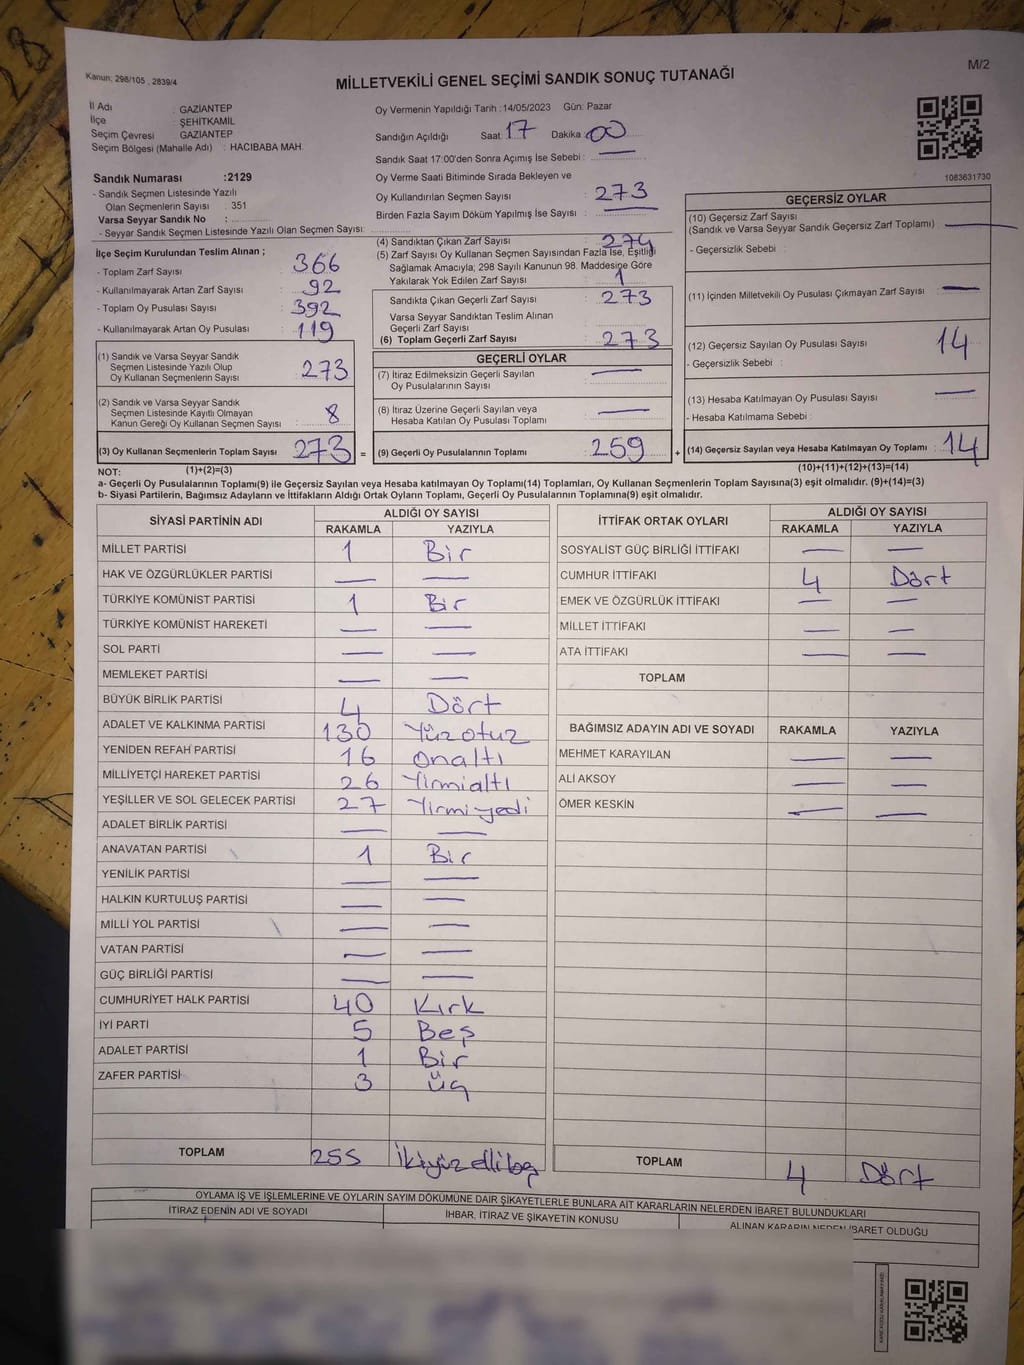 Kanun: 298/105 , 2839/4
MİLLETVEKİLİ GENEL SEÇİMİ SANDIK SONUÇ TUTANAĞI
M/2
İl Adı : GAZİANTEP
İlçe : ŞEHİTKAMİL
Seçim Çevresi : GAZİANTEP
Seçim Bölgesi (Mahalle Adı) : HACIBABA MAH.
Sandık Numarası :2129
- Sandık Seçmen Listesinde Yazılı
Olan Seçmenlerin Sayısı : 351
Varsa Seyyar Sandık No :
- Seyyar Sandık Seçmen Listesinde Yazılı Olan Seçmen Sayısı:
Oy Vermenin Yapıldığı Tarih :14/05/2023 Gün: Pazar
Sandığın Açıldığı Saat 17 Dakika : 00
Sandık Saat 17:00'den Sonra Açımış İse Sebebi : —
Oy Verme Saati Bitiminde Sırada Bekleyen ve
Oy Kullandırılan Seçmen Sayısı : 273
Birden Fazla Sayım Döküm Yapılmış İse Sayısı : —
1083631730
İlçe Seçim Kurulundan Teslim Alınan ;
- Toplam Zarf Sayısı : 366
- Kullanılmayarak Artan Zarf Sayısı : 92
- Toplam Oy Pusulası Sayısı : 392
- Kullanılmayarak Artan Oy Pusulası : 119
(1) Sandık ve Varsa Seyyar Sandık
Seçmen Listesinde Yazılı Olup
Oy Kullanan Seçmenlerin Sayısı : 273
(2) Sandık ve Varsa Seyyar Sandık
Seçmen Listesinde Kayıtlı Olmayan
Kanun Gereği Oy Kullanan Seçmen Sayısı : 8
(3) Oy Kullanan Seçmenlerin Toplam Sayısı : 273 =
(4) Sandıktan Çıkan Zarf Sayısı : 274
(5) Zarf Sayısı Oy Kullanan Seçmen Sayısından Fazla İse, Eşitliği
Sağlamak Amacıyla; 298 Sayılı Kanunun 98. Maddesine Göre
Yakılarak Yok Edilen Zarf Sayısı : 1
Sandıkta Çıkan Geçerli Zarf Sayısı : 273
Varsa Seyyar Sandıktan Teslim Alınan
Geçerli Zarf Sayısı
(6) Toplam Geçerli Zarf Sayısı : 273
GEÇERLİ OYLAR
(7) İtiraz Edilmeksizin Geçerli Sayılan
Oy Pusulalarının Sayısı : —
(8) İtiraz Üzerine Geçerli Sayılan veya
Hesaba Katılan Oy Pusulası Toplamı : —
(9) Geçerli Oy Pusulalarının Toplamı : 259 +
GEÇERSİZ OYLAR
(10) Geçersiz Zarf Sayısı
(Sandık ve Varsa Seyyar Sandık Geçersiz Zarf Toplamı) : —
- Geçersizlik Sebebi :
(11) İçinden Milletvekili Oy Pusulası Çıkmayan Zarf Sayısı : —
(12) Geçersiz Sayılan Oy Pusulası Sayısı : 14
- Geçersizlik Sebebi :
(13) Hesaba Katılmayan Oy Pusulası Sayısı : —
- Hesaba Katılmama Sebebi :
(14) Geçersiz Sayılan veya Hesaba Katılmayan Oy Toplamı : 14
NOT: (1)+(2)=(3) (10)+(11)+(12)+(13)=(14)
a- Geçerli Oy Pusulalarının Toplamı(9) ile Geçersiz Sayılan veya Hesaba katılmayan Oy Toplamı(14) Toplamları, Oy Kullanan Seçmenlerin Toplam Sayısına(3) eşit olmalıdır. (9)+(14)=(3)
b- Siyasi Partilerin, Bağımsız Adayların ve İttifakların Aldığı Ortak Oyların Toplamı, Geçerli Oy Pusulalarının Toplamına(9) eşit olmalıdır.
SİYASİ PARTİNİN ADI ALDIĞI OY SAYISI
RAKAMLA YAZIYLA
MİLLET PARTİSİ 1 Bir
HAK VE ÖZGÜRLÜKLER PARTİSİ — —
TÜRKİYE KOMÜNİST PARTİSİ 1 Bir
TÜRKİYE KOMÜNİST HAREKETİ — —
SOL PARTİ — —
MEMLEKET PARTİSİ — —
BÜYÜK BİRLİK PARTİSİ 4 Dört
ADALET VE KALKINMA PARTİSİ 130 Yüzotuz
YENİDEN REFAH PARTİSİ 16 Onaltı
MİLLİYETÇİ HAREKET PARTİSİ 26 Yirmialtı
YEŞİLLER VE SOL GELECEK PARTİSİ 27 Yirmiyedi
ADALET BİRLİK PARTİSİ — —
ANAVATAN PARTİSİ 1 Bir
YENİLİK PARTİSİ — —
HALKIN KURTULUŞ PARTİSİ — —
MİLLİ YOL PARTİSİ — —
VATAN PARTİSİ — —
GÜÇ BİRLİĞİ PARTİSİ — —
CUMHURİYET HALK PARTİSİ 40 Kırk
İYİ PARTİ 5 Beş
ADALET PARTİSİ 1 Bir
ZAFER PARTİSİ 3 Üç
TOPLAM 255 İkiyüzellibeş
İTTİFAK ORTAK OYLARI ALDIĞI OY SAYISI
RAKAMLA YAZIYLA
SOSYALİST GÜÇ BİRLİĞİ İTTİFAKI — —
CUMHUR İTTİFAKI 4 Dört
EMEK VE ÖZGÜRLÜK İTTİFAKI — —
MİLLET İTTİFAKI — —
ATA İTTİFAKI — —
TOPLAM
BAĞIMSIZ ADAYIN ADI VE SOYADI RAKAMLA YAZIYLA
MEHMET KARAYILAN — —
ALİ AKSOY — —
ÖMER KESKİN — —
TOPLAM 4 Dört
OYLAMA İŞ VE İŞLEMLERİNE VE OYLARIN SAYIM DÖKÜMÜNE DAİR ŞİKAYETLERLE BUNLARA AİT KARARLARIN NELERDEN İBARET BULUNDUKLARI
İTİRAZ EDENİN ADI VE SOYADI İHBAR, İTİRAZ VE ŞİKAYETİN KONUSU ALINAN KARARIN NEDEN İBARET OLDUĞU